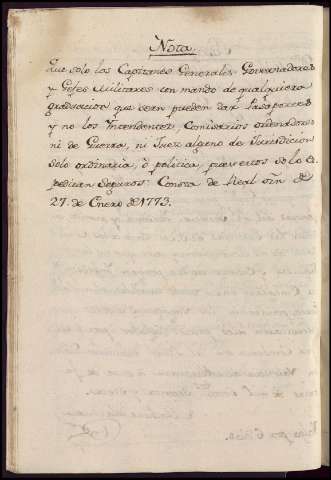 Nota
Que solo los Capitanes Generales Governadores
y Gefes Militares con mando de qualquiera
graduacion que sean pueden dar Pasaportes
y no los Intendentes, Comisarios ordenadores
ni de Guerra, ni Juez alguno de Jurisdicion
solo ordinaria, ò politica, pues estos solo es
pediran Seguros: Consta de Real orñ de
27. de Enero de 1773.